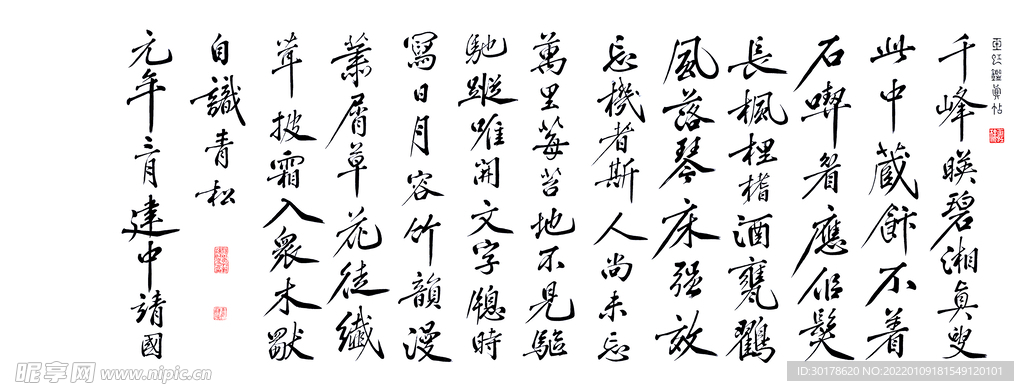 千峰暎碧湘真叟
此中藏飰不着
石喫眉應似髮
長楓榰酒甕鸛
風落琴床强效
忘機者斯人尚未忘
萬里莓苔地不見驅
馳蹤唯開文字牕時
寫日月容竹韻漫
蕭屑草花徒纖
茸披霜入衆木獸
自識青松
元年月建中請國
昵享网 www.nipic.cn
ID:30178620 NO:20220109181549120101